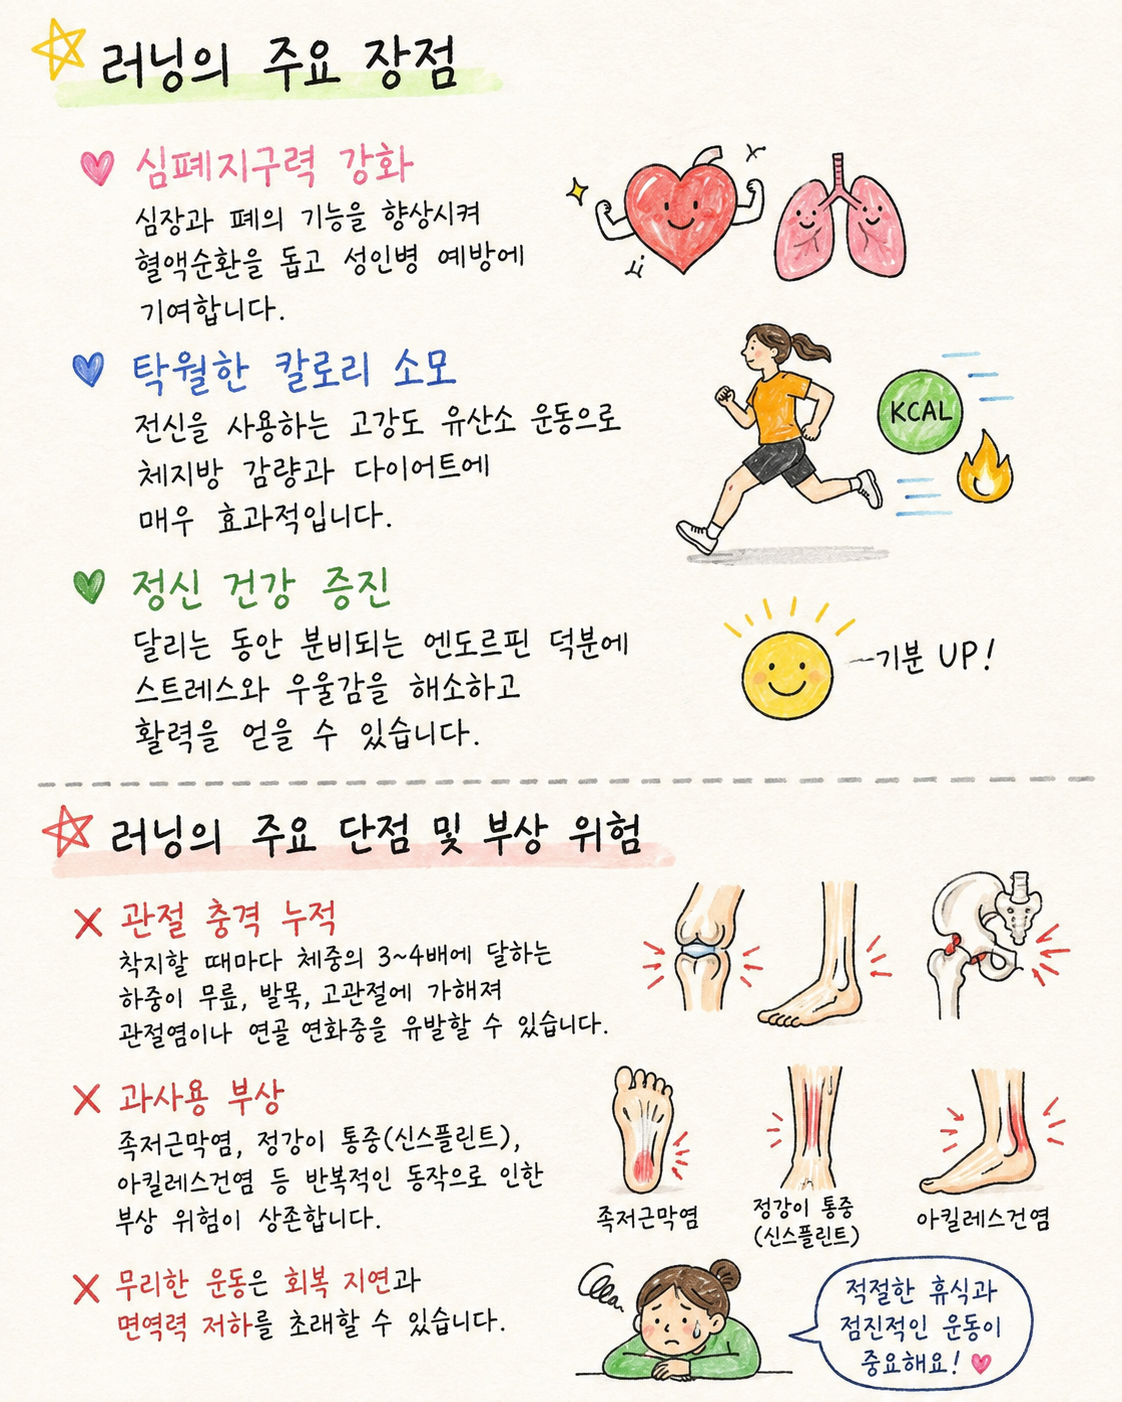 러닝의 주요 장점
심폐지구력 강화
심장과 폐의 기능을 향상시켜
혈액순환을 돕고 성인병 예방에
기여합니다.
탁월한 칼로리 소모
전신을 사용하는 고강도 유산소 운동으로
체지방 감량과 다이어트에
매우 효과적입니다.
KCAL
정신 건강 증진
달리는 동안 분비되는 엔도르핀 덕분에
스트레스와 우울감을 해소하고
활력을 얻을 수 있습니다.
기분 UP!
러닝의 주요 단점 및 부상 위험
관절 충격 누적
착지할 때마다 체중의 3~4배에 달하는
하중이 무릎, 발목, 고관절에 가해져
관절염이나 연골 연화증을 유발할 수 있습니다.
과사용 부상
족저근막염, 정강이 통증(신스플린트),
아킬레스건염 등 반복적인 동작으로 인한
부상 위험이 상존합니다.
족저근막염
정강이 통증
(신스플린트)
아킬레스건염
무리한 운동은 회복 지연과
면역력 저하를 초래할 수 있습니다.
적절한 휴식과
점진적인 운동이
중요해요!